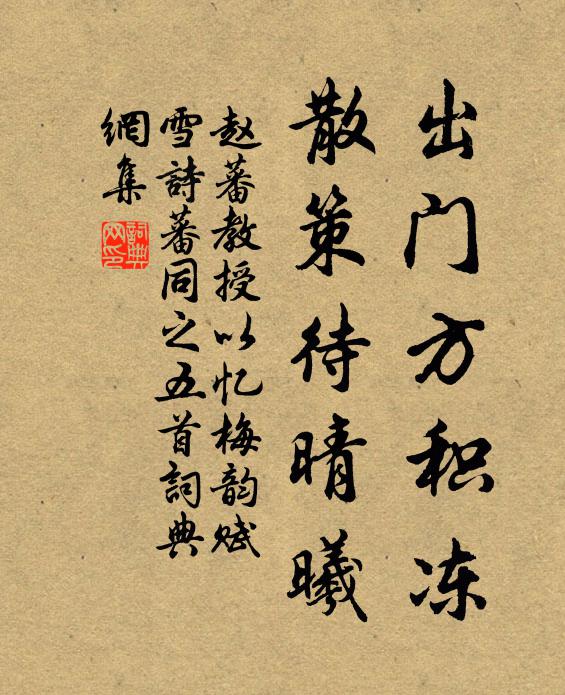 出门方积冻
散策待晴曦
赵蕃教授以忆梅韵赋
雪詩蕃同之五首詞典
網集
詞典網印